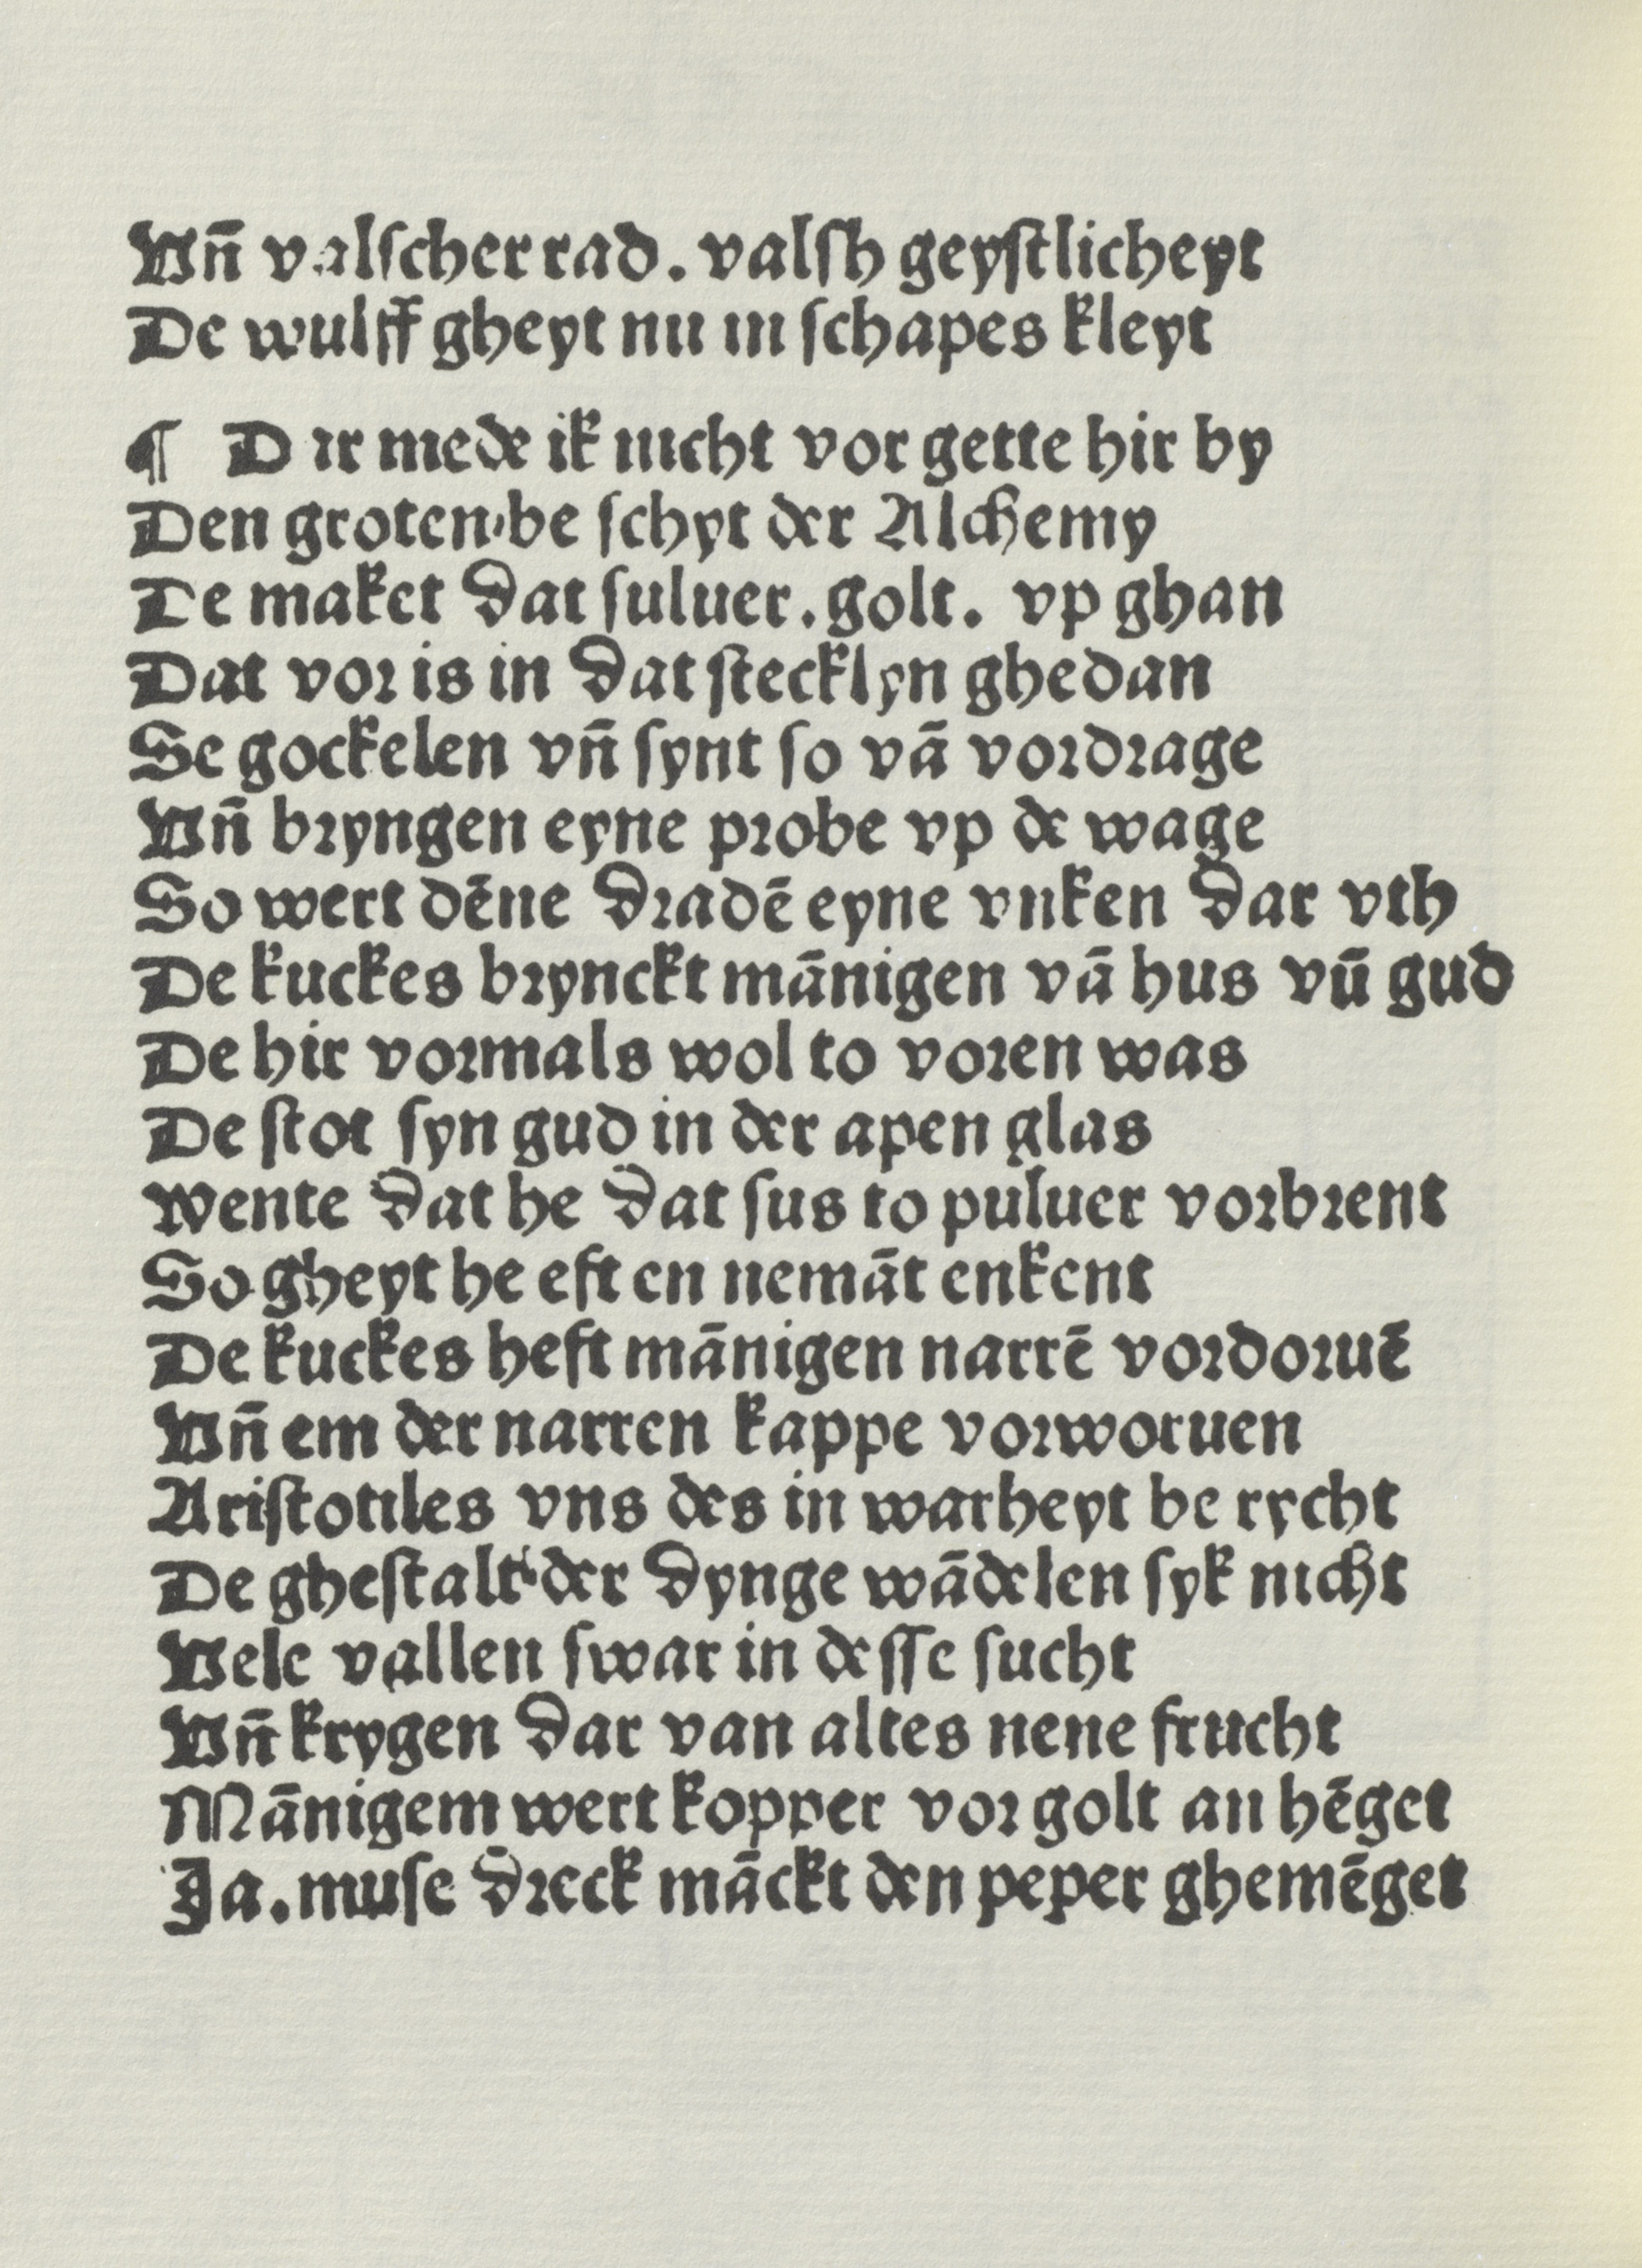 Vñ valscher rad. valsh geystlicheyt
De wulff gheyt nu in schapes kleyt
¶ D ar mede ik nicht vor gette hir by
Den groten be schyt der Alchemy
De maket dat suluer. golt. vp ghan
Dat vor is in dat stecklyn ghedan
Se gockelen vñ synt so vā vordrage
Vñ bryngen eyne probe vp de wage
So wert dēne dradē eyne vnken dar vth
De kuckes brynckt mānigen vā hus vū gud
De hir vormals wol to voren was
De stot syn gud in der apen glas
wente dat he dat sus to puluer vorbrent
So gheyt he eft en nemāt enkent
De kuckes heft mānigen narrē vordoruē
Vñ em der narren kappe vorworuen
Aristotiles vns des in warheyt be rycht
De ghestalt der dynge wādelen syk nicht
Vele vallen swar in desse sucht
Vñ krygen dar van altes nene frucht
Mānigem wert kopper vor golt an hēget
Ja. muse dreck māckt den peper ghemēget